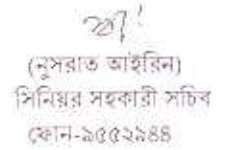 (নুসরাত আইরিন)
সিনিয়র সহকারী সচিব
ফোন-৯৫৫২৯৪৪